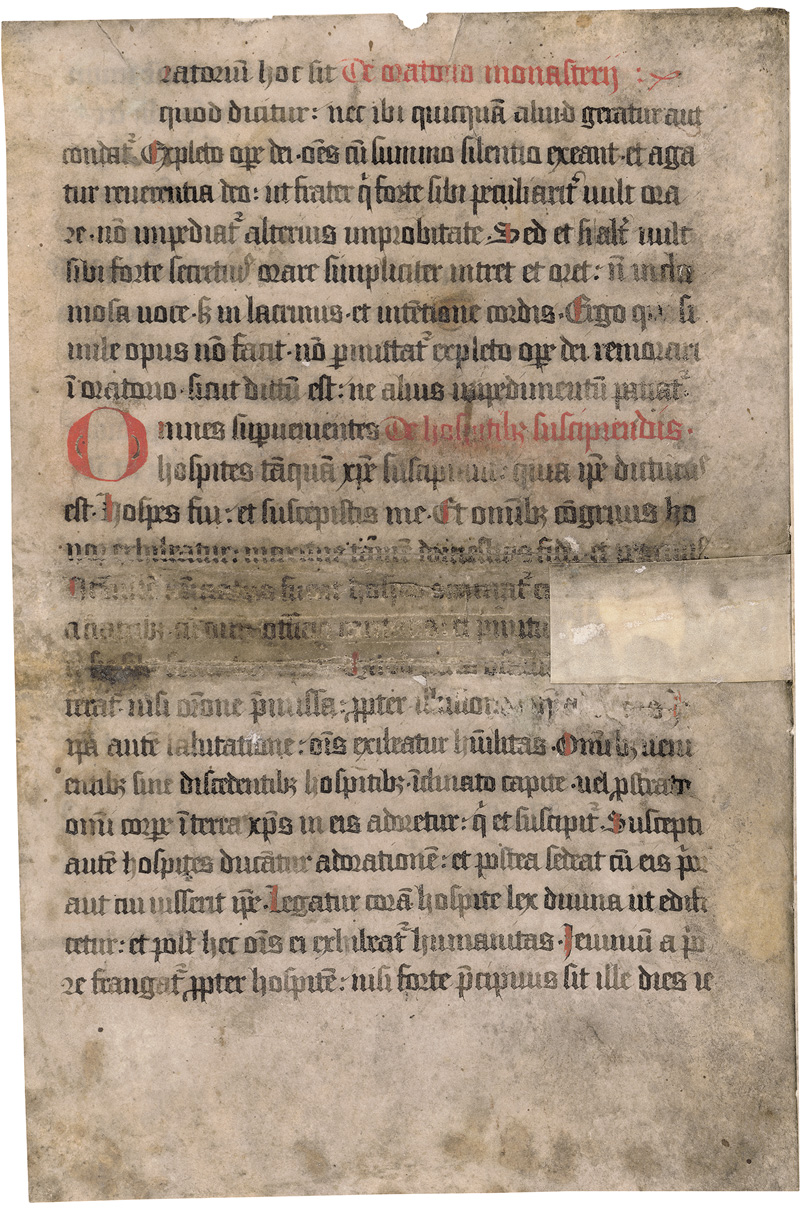 ratoriū hoc sit De oratorio monasterij
quod dicitur: nec ibi quicquā aliud geratur aut
condat᷑. Expleto oꝑe dei·oēs cū summo silentio exeant·et aga
tur reuerentia deo: ut frater q̇ forte sibi peculiarit᷑ uult ora
re·nō impediat᷑ alterius inprobitate. Sed et si alit᷑ uult
sibi forte secretius orare simpliciter intret et oret: nō in cla
mosa uoce·sꝫ in lacrimis·et intētione cordis. Ergo qui si
mile opus nō facit·nō ꝑmittat᷑ expleto oꝑe dei remorari
ī oratorio·sicut dictū est: ne alius impedimentū patiat᷑.
Omnes supuenientes De hospitibꝫ suscipiendis.
hospites tāquā xp̄c suscipiant: quia ip̄e dicturus
est. Hospes fui: et suscepistis me. Et omībꝫ cōgruus ho
nor exhibeatur: maxime tamē domesticis fidei et
serat nisi orōne p̄missa: ꝓpter
ip̄a autē salutatione: oīs exibeatur hūilitas. Omībꝫ ueni
entibꝫ siue discedentibꝫ hospitibꝫ·īclinato capite·uel ꝓstrato
omī corꝑe ī terra xp̄s in eis adoretur: q̇ et suscipit᷑. Suscepti
autē hospites ducātur ad orationē: et postea sedeat cū eis p̄or
aut cui iusserit ip̄e. Legatur corā hospite lex diuina ut edifi
cetur: et post hec oīs ei exhibeat᷑ humanitas. Ieiuniū a p̄o
re frangat᷑ ꝓpter hospitē: nisi forte p̄cipuus sit ille dies ie